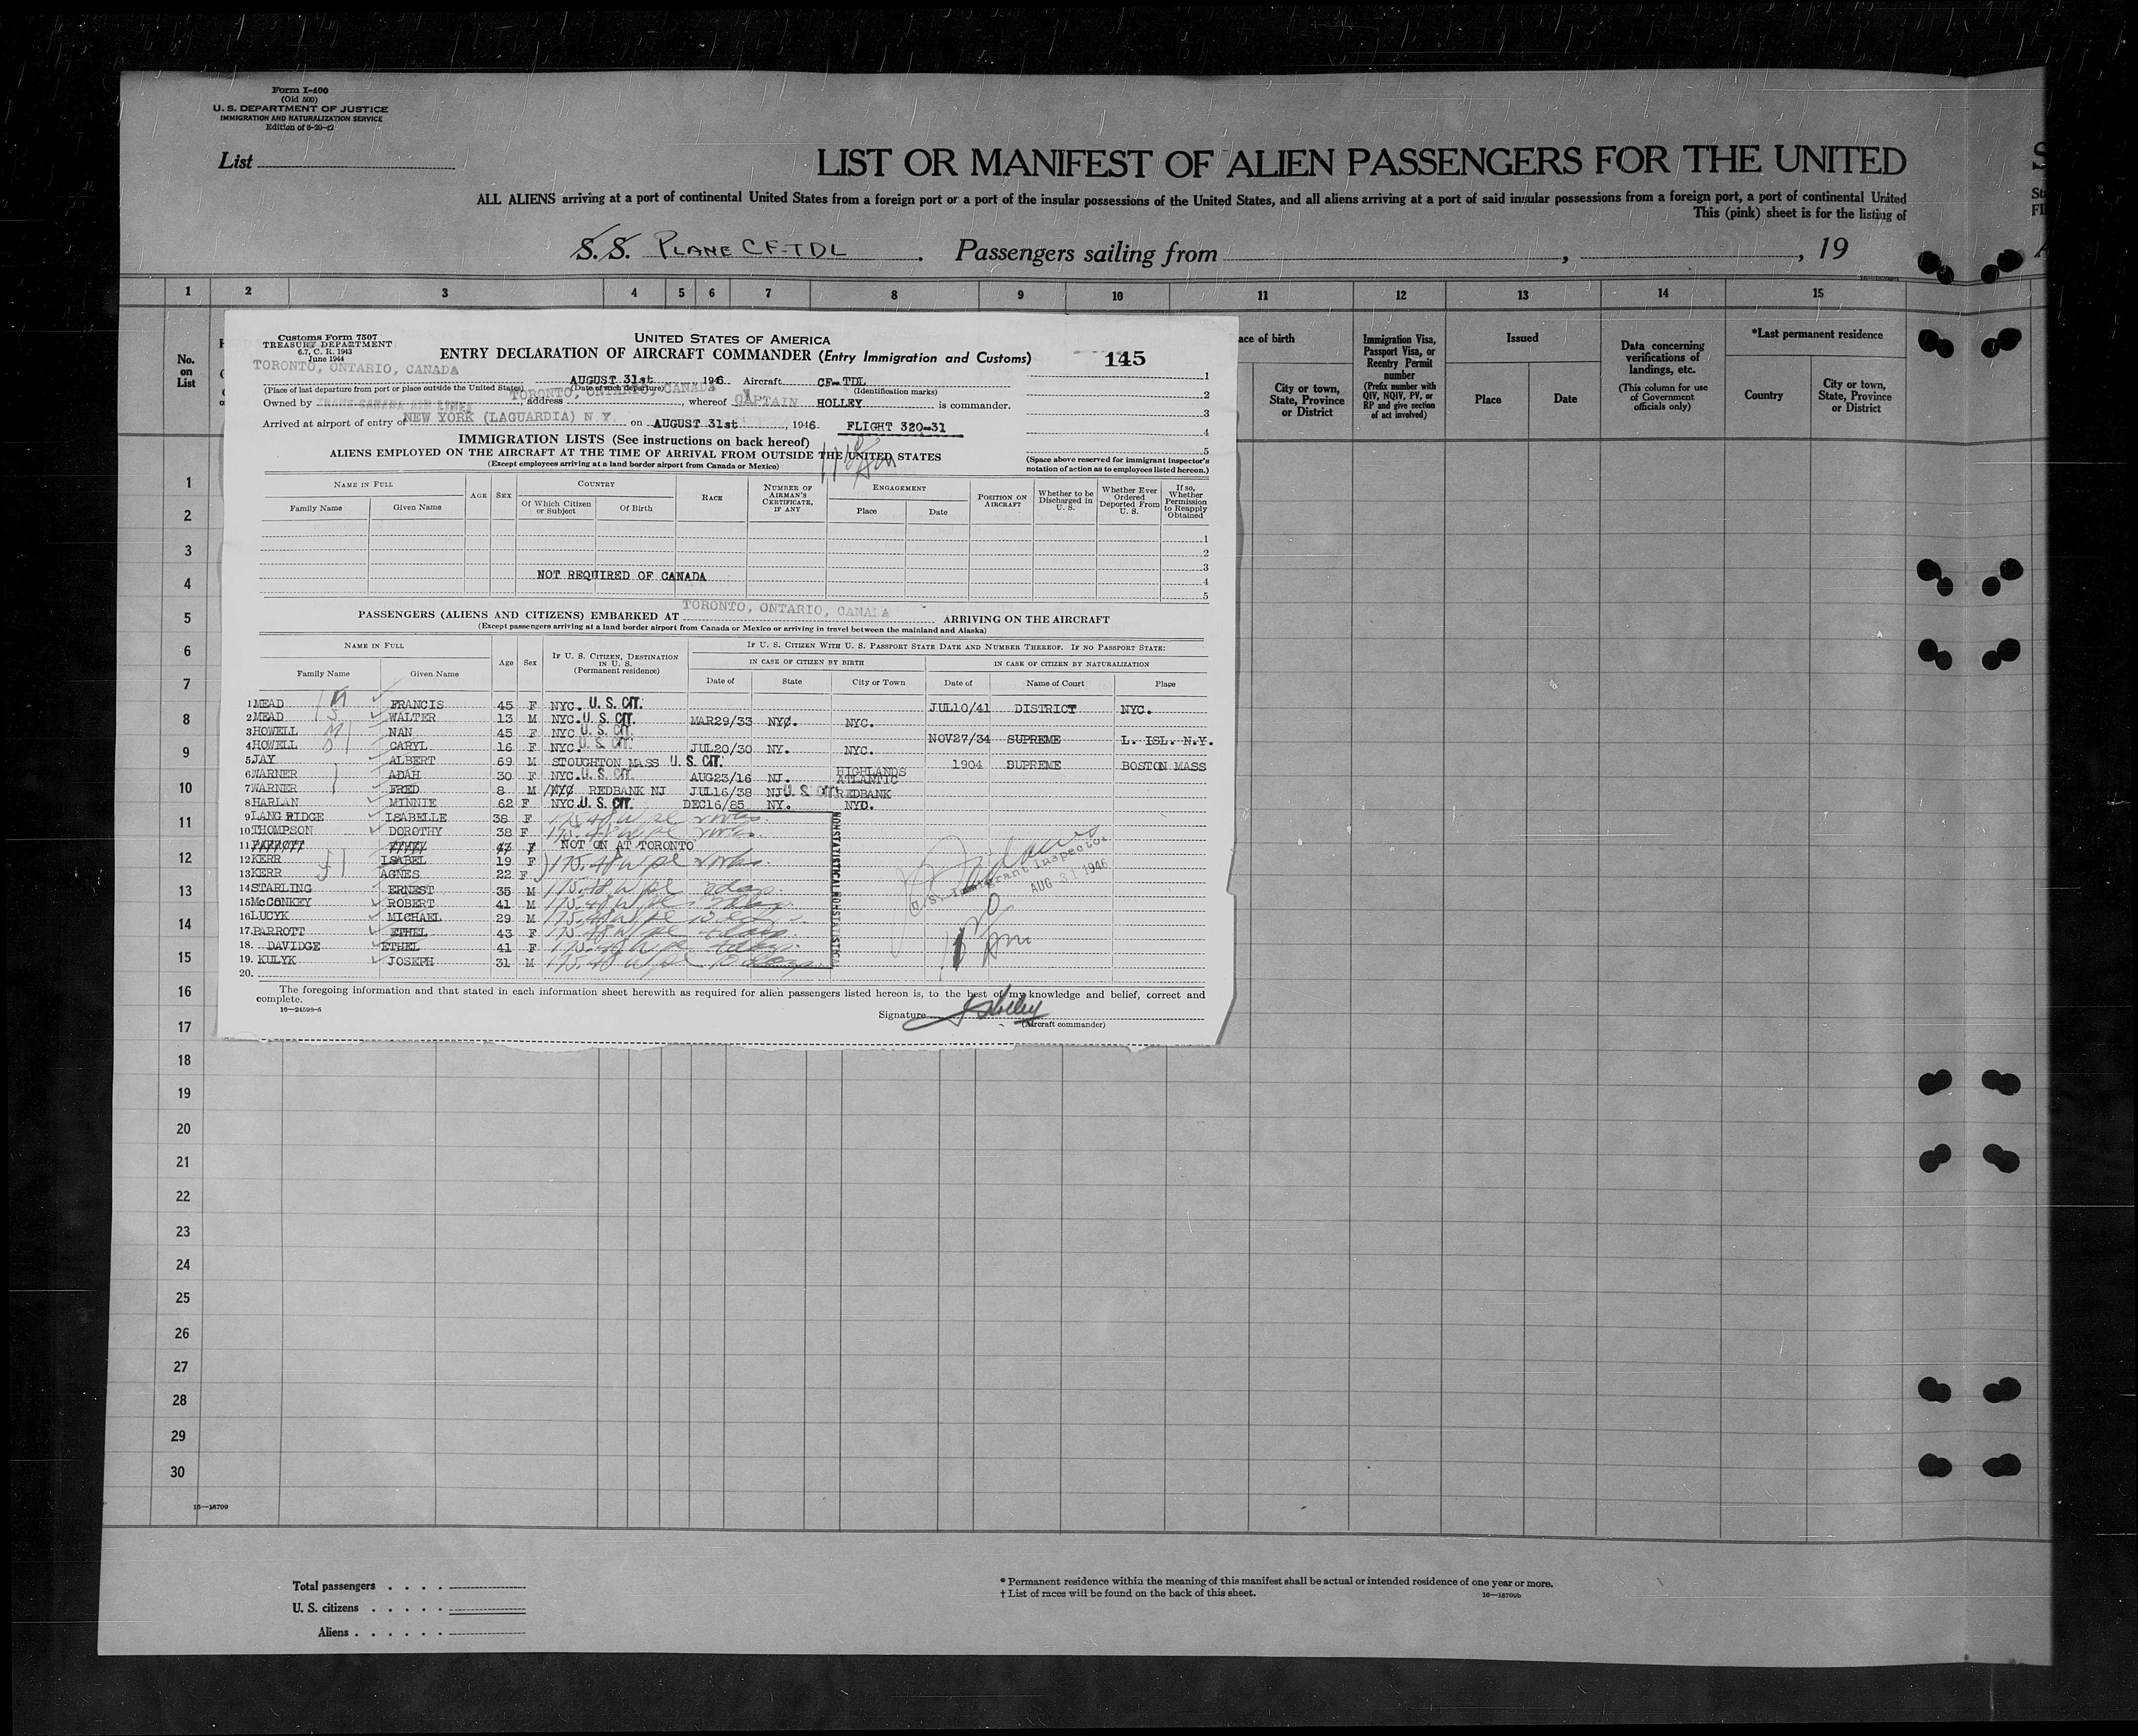 Form I-400
(Old 500)
U. S. DEPARTMENT OF JUSTICE
IMMIGRATION AND NATURALIZATION SERVICE
Edition of 6-20-42
List
LIST OR MANIFEST OF ALIEN PASSENGERS FOR THE UNITED
ALL ALIENS arriving at a port of continental United States from a foreign port or a port of the insular possessions of the United States, and all aliens arriving at a port of said insular possessions from a foreign port, a port of continental United
This (pink) sheet is for the listing of
S.S. PLANE CF-TDL . Passengers sailing from , , 19
1 2 3 4 5 6 7 8 9 10 11 12 13 14 15
No. on List
ace of birth
City or town, State, Province or District
Immigration Visa, Passport Visa, or Reentry Permit number
(Prefix number with QIV, NQIV, PV, or RP and give section of act involved)
Issued
Place Date
Data concerning verifications of landings, etc.
(This column for use of Government officials only)
*Last permanent residence
Country City or town, State, Province or District
Customs Form 7507
TREASURY DEPARTMENT
6.7, C. R. 1943
June 1944
UNITED STATES OF AMERICA
ENTRY DECLARATION OF AIRCRAFT COMMANDER (Entry Immigration and Customs)
145
TORONTO, ONTARIO, CANADA
AUGUST 31st 1946 Aircraft CF-TDL
(Place of last departure from port or place outside the United States) (Date of such departure) (Identification marks)
Owned by TRANS-CANADA AIR LINES , address TORONTO, ONTARIO, CANADA , whereof CAPTAIN HOLLEY is commander.
Arrived at airport of entry of NEW YORK (LAGUARDIA) N Y. on AUGUST 31st , 1946. FLIGHT 320-31
1
2
3
4
5
(Space above reserved for immigrant inspector's notation of action as to employees listed hereon.)
IMMIGRATION LISTS (See instructions on back hereof)
ALIENS EMPLOYED ON THE AIRCRAFT AT THE TIME OF ARRIVAL FROM OUTSIDE THE UNITED STATES
(Except employees arriving at a land border airport from Canada or Mexico)
NAME IN FULL AGE SEX COUNTRY RACE NUMBER OF AIRMAN'S CERTIFICATE, IF ANY ENGAGEMENT POSITION ON AIRCRAFT Whether to be Discharged in U. S. Whether Ever Ordered Deported From U. S. If so, Whether Permission to Reapply Obtained
Family Name Given Name Of Which Citizen or Subject Of Birth Place Date
1
2
3
NOT REQUIRED OF CANADA 4
5
PASSENGERS (ALIENS AND CITIZENS) EMBARKED AT TORONTO, ONTARIO, CANADA ARRIVING ON THE AIRCRAFT
(Except passengers arriving at a land border airport from Canada or Mexico or arriving in travel between the mainland and Alaska)
NAME IN FULL Age Sex IF U. S. CITIZEN, DESTINATION IN U. S. (Permanent residence) IF U. S. CITIZEN WITH U. S. PASSPORT STATE DATE AND NUMBER THEREOF. IF NO PASSPORT STATE:
IN CASE OF CITIZEN BY BIRTH IN CASE OF CITIZEN BY NATURALIZATION
Family Name Given Name Date of State City or Town Date of Name of Court Place
1 MEAD M FRANCIS 45 F NYC. U. S. CIT. JUL10/41 DISTRICT NYC.
2 MEAD S WALTER 13 M NYC. U. S. CIT. MAR29/33 NY. NYC.
3 HOWELL M NAN 45 F NYC U. S. CIT. NOV27/34 SUPREME L. ISL. N.Y.
4 HOWELL D CARYL 16 F NYC. U. S. CIT. JUL20/30 NY. NYC.
5 JAY ALBERT 69 M STOUGHTON MASS U. S. CIT. 1904 SUPREME BOSTON MASS
6 WARNER ADAH 30 F NYC. U. S. CIT. AUG23/16 NJ. HIGHLANDS ATLANTIC
7 WARNER FRED 8 M REDBANK NJ JUL16/38 NJ U. S. CIT. REDBANK
8 HARLAN MINNIE 62 F NYC. U. S. CIT. DEC16/85 NY. NYC.
9 LANGRIDGE ISABELLE 38 F 175.48 W pl 2 wks.
10 THOMPSON DOROTHY 38 F 175.48 W pl 2 wks.
11 PARROTT ETHEL 43 F NOT ON AT TORONTO
12 KERR ISABEL 19 F 175.48 W pl 2 wks.
13 KERR AGNES 22 F
14 STARLING ERNEST 35 M 175.48 W pl days.
15 McCONKEY ROBERT 41 M 175.48 W pl days.
16 LUCYK MICHAEL 29 M 175.48 W pl 10 days.
17. PARROTT ETHEL 43 F 175.48 W pl days.
18. DAVIDGE ETHEL 41 F 175.48 W pl days.
19. KULYK JOSEPH 31 M 175.48 W pl 10 days.
20.
NONSTATISTICAL NONSTATISTICAL
U.S. Immigrant Inspector
AUG 31 1946
The foregoing information and that stated in each information sheet herewith as required for alien passengers listed hereon is, to the best of my knowledge and belief, correct and complete.
16—24598-5
Signature Holley
(Aircraft commander)
1
2
3
4
5
6
7
8
9
10
11
12
13
14
15
16
17
18
19
20
21
22
23
24
25
26
27
28
29
30
16—18709
Total passengers . . . .
U. S. citizens . . . . .
Aliens . . . . . .
* Permanent residence within the meaning of this manifest shall be actual or intended residence of one year or more.
† List of races will be found on the back of this sheet. 16—18709b